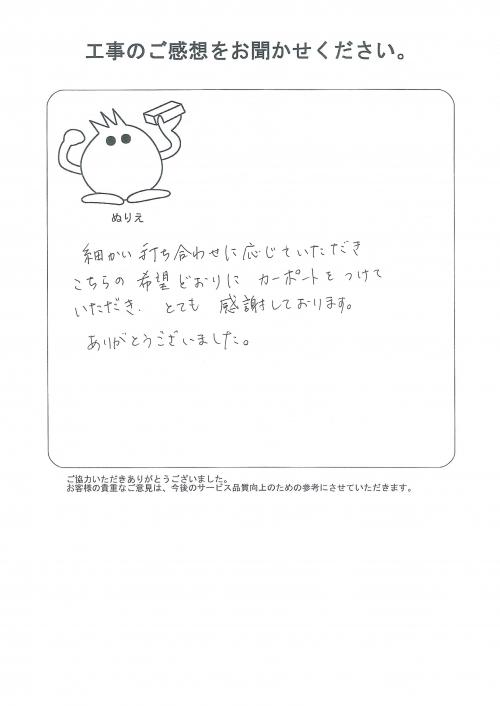 工事のご感想をお聞かせください。
ぬりえ
細かい打ち合わせに応じていただき
こちらの希望どおりに カーポートをつけて
いただき、とても 感謝しております。
ありがとうございました。
ご協力いただきありがとうございました。
お客様の貴重なご意見は、今後のサービス品質向上のための参考にさせていただきます。